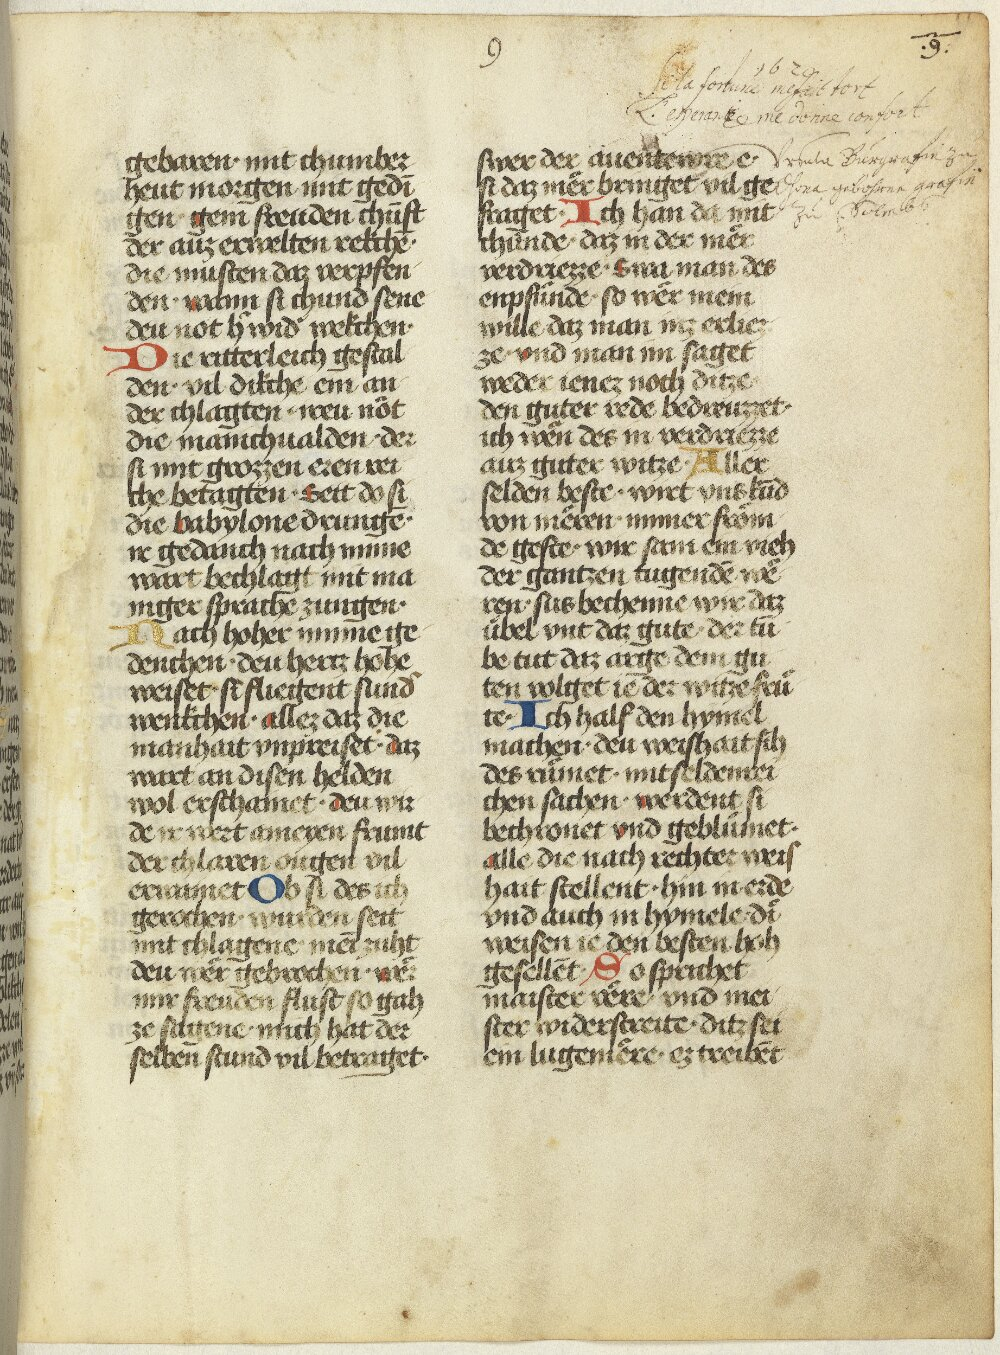 9
.9.
1629
Si la fortune me fait tort
L'esperance me donne confort
Ursula Burgrafin zu
Dhona gebohrne grafin
zu Solmbs
gebaren · mit chumber
heut morgen mit gedi
gen · gem freuden chūst
der auz erwelten rekche ·
die musten daz verpfen
den · wann si chund sene
deu not h wid welchen ·
Die ritterleich gestal
den · vil dikche ein an
der chlagten · weu nöt
die manichualden · der
si mit grozzen eren rei
che betagten · Seit do si
die babylone drunge ·
ir gedauch nach minne
wart bechlagt mit ma
niger sprache zungen ·
Nach hoher minne ge
denchen · deu hertz hohe
weiset · si fliegent sund
wenkchen · allez daz die
manhait vnpreiset · daz
wart an disen helden
wol erschainet · deu wir
de ir wert ameyen frumt
der chlaren ougen vil
erwainet Ob si des ich
gerochen · wurden seit
mit chlagene · mei zuht
deu wër gebrochen · wër
mir freuden flust so gah
ze sagene · mich hat der
selben stund vil betraget ·
swer der auentewre e ·
si daz mër bringet vil ge
fraget · Ich han da mit
chunde · daz in der mër
verdriezze · Swa man des
enpfünde · so wër mein
wille daz man inz erliez
ze · vnd man im saget
weder ienez noch ditze ·
den guter rede bedreuzzet ·
ich wën des in verdriezze
auz guter witze · Aller
selden beste · wirt vns kūd
von mëren · nimer fröm
de geste · wir sam ein vieh
der gantzen tugende wë
ren · sus bechenne wir daz
übel vnt daz gute · der tū
be tut daz arge dem gu
ten volget ie der witze frü
te · Ich half den hymel
machen · deu weishait sih
des rümet · mit seldenrei
chen sachen · werdent si
bechronet vnd geblümet ·
alle die nach rechter weis
hait stellent · hin in erde
vnd auch in hymele · di
weisen ie den besten hoh
gesellet · So sprichet
maister vëre · vnd mei
ster widerstreite · ditz sei
ein lugemëre · ez treibēt